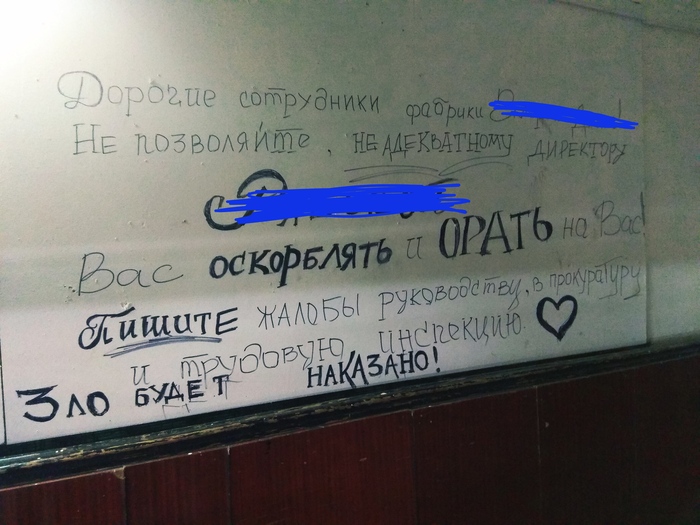 Дорогие сотрудники фабрики
Не позволяйте, НЕАДЕКВАТНОМУ ДИРЕКТОРУ
Вас ОСКОРБЛЯТЬ и ОРАТЬ на Вас!
Пишите ЖАЛОБЫ руководству, в прокуратуру
и трудовую инспекцию.
Зло БУДЕТ НАКАЗАНО!